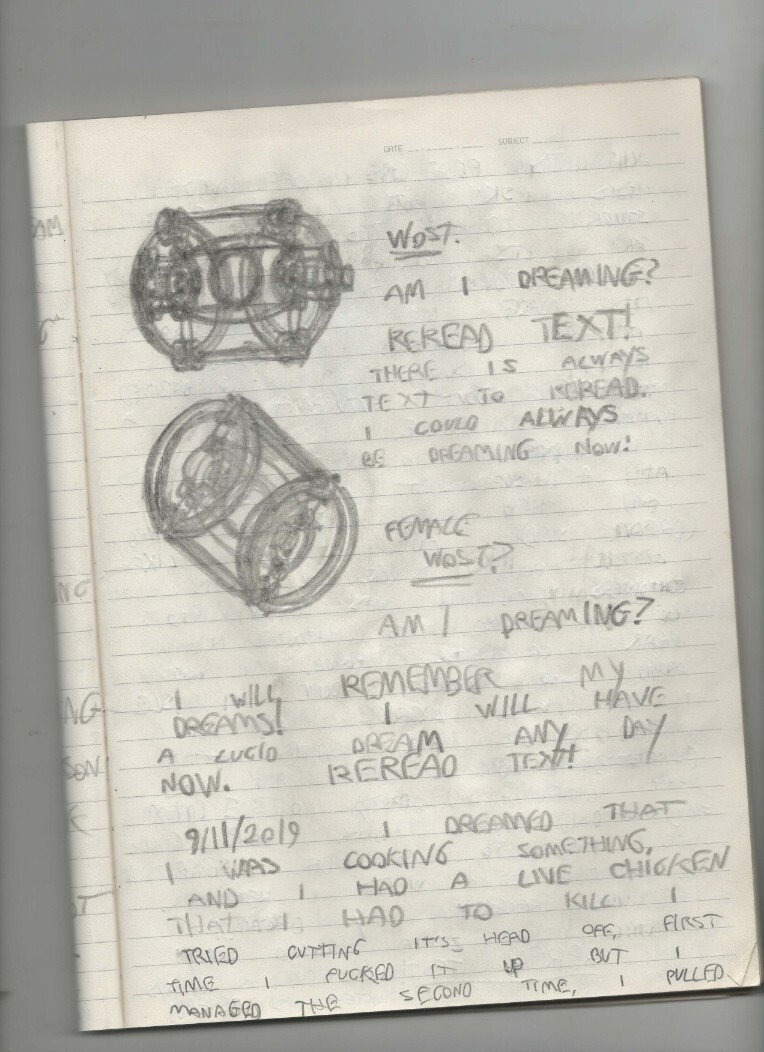 DATE SUBJECT
WDST.
AM I DREAMING?
REREAD TEXT!
THERE IS ALWAYS
TEXT TO REREAD.
I COULD ALWAYS
BE DREAMING NOW!
FEMALE
WDST?
AM I DREAMING?
I WILL REMEMBER MY
DREAMS! I WILL HAVE
A LUCID DREAM ANY DAY
NOW. REREAD TEXT!
9/11/2019 I DREAMED THAT
I WAS COOKING SOMETHING,
AND I HAD A LIVE CHICKEN
THAT I HAD TO KILL. I
TRIED CUTTING IT'S HEAD OFF, FIRST
TIME I FUCKED IT UP BUT I
MANAGED THE SECOND TIME, I PULLED